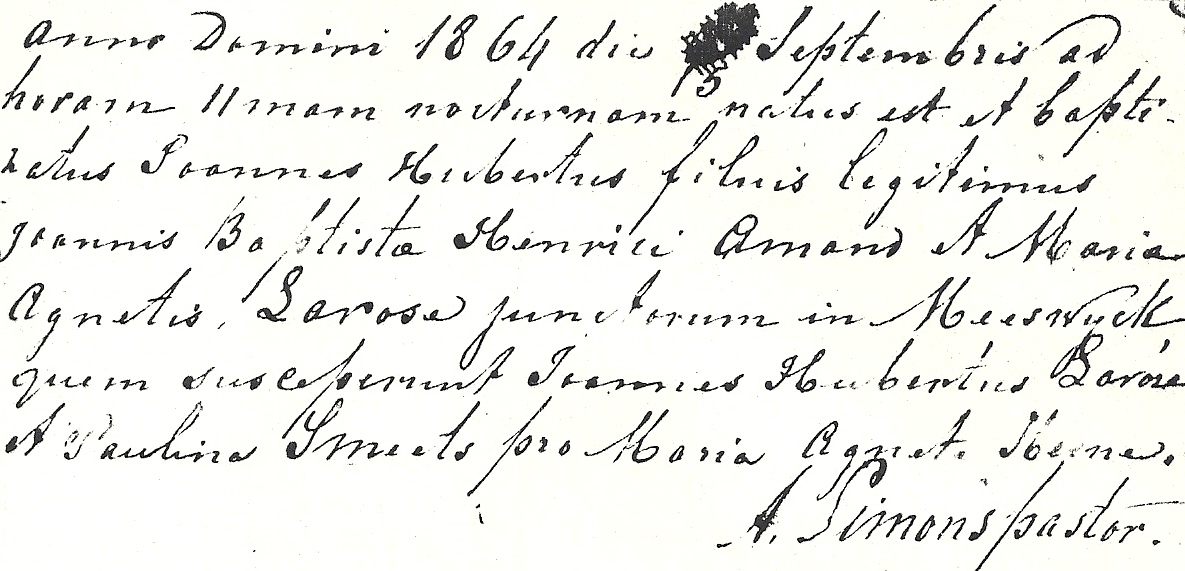 Anno Domini 1864 die 15 Septembris ad
horam 11mam nocturnam natus est et bapti-
zatus Joannes Hubertus filius legitimus
Joannis Baptista Henrici Amand et Maria
Agnetis, Larose junctorum in Meeswyck
quem susceperunt Joannes Hubertus Larose
et Paulina Smeets pro Maria Agnet.
A. Simons pastor.